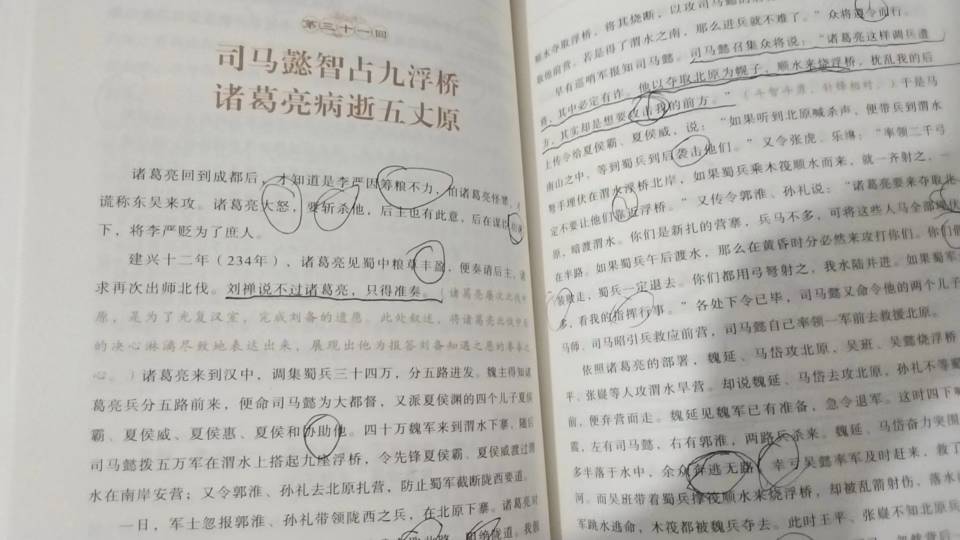 第三十一回
司马懿智占九浮桥
诸葛亮病逝五丈原
诸葛亮回到成都后，才知道是李严因筹粮不力，怕诸葛亮怪罪，
谎称东吴来攻。诸葛亮大怒，要斩杀他，后主也有此意，后在谋
下，将李严贬为了庶人。
建兴十二年（234年），诸葛亮见蜀中粮草丰盈，便奏请后主，请
求再次出师北伐。刘禅说不过诸葛亮，只得准奏。（诸葛亮屡次北伐
原，是为了光复汉室，完成刘备的遗愿。此处叙述，将诸葛亮北伐
的决心淋漓尽致地表达出来，展现出他为报答刘备知遇之恩的
心。）诸葛亮来到汉中，调集蜀兵三十四万，分五路进发。魏主得知诸
葛亮兵分五路前来，便命司马懿为大都督，又派夏侯渊的四个儿子夏侯
霸、夏侯威、夏侯惠、夏侯和协助他。四十万魏军来到渭水下寨，随后
司马懿拨五万军在渭水上搭起九座浮桥，令先锋夏侯霸、夏侯威渡过渭
水在南岸安营；又令郭淮、孙礼去北原扎营，防止蜀军截断陇西要道。
一日，军士忽报郭淮、孙礼带领陇西之兵，在北原下寨。诸葛亮对
陇道。我假
将其烧断，以攻司马懿的
顺水夺取浮桥，
敌他前营，若是得了渭水之南，那么进兵就不难了。”众将遵令而行。
早有巡哨军报知司马懿。司马懿召集众将说：“诸葛亮这样调兵遣
将，其中必定有诈。他以夺取北原为幌子，顺水来烧浮桥，扰乱我的后
方，其实却是想要攻击我的前方。”（斗智斗勇，针锋相对。）于是马
上传令给夏侯霸、夏侯威，说：“如果听到北原喊杀声，便带兵到渭水
南山之中，等到蜀兵到后袭击他们。”又令张虎、乐綝：“率领二千弓
弩手埋伏在渭水浮桥北岸，如果蜀兵乘木筏顺水而来，就一齐射之，一
定不要让他们靠近浮桥。”又传令郭淮、孙礼说：“诸葛亮要来夺取北
原，暗渡渭水。你们是新扎的营寨，兵马不多，可将这些人马全部埋伏
在半路。如果蜀兵午后渡水，那么在黄昏时分必然来攻打你们。你们
败走，蜀兵一定退去。你们都用弓弩射之，我水陆并进。如果蜀军
多，看我的指挥行事。”各处下令已毕，司马懿又命令他的两个儿子
马师、司马昭引兵救应前营，司马懿自己率领一军前去救援北原。
依照诸葛亮的部署，魏延、马岱攻北原，吴班、吴懿烧浮桥，
平、张嶷等人攻渭水旱营。却说魏延、马岱去攻北原，孙礼不等蜀
前，便弃营而走。魏延见魏军已有准备，急令退军。这时四下
震，左有司马懿，右有郭淮，两路兵杀来。魏延、马岱奋力突围
多半落于水中，余众奔逃无路，幸亏吴懿率军及时赶来，救了
河。而吴班带着蜀兵撑筏顺水来烧浮桥，却被乱箭射伤，落水
军跳水逃命，木筏都被魏兵夺去。此时王平、张嶷不知北原兵